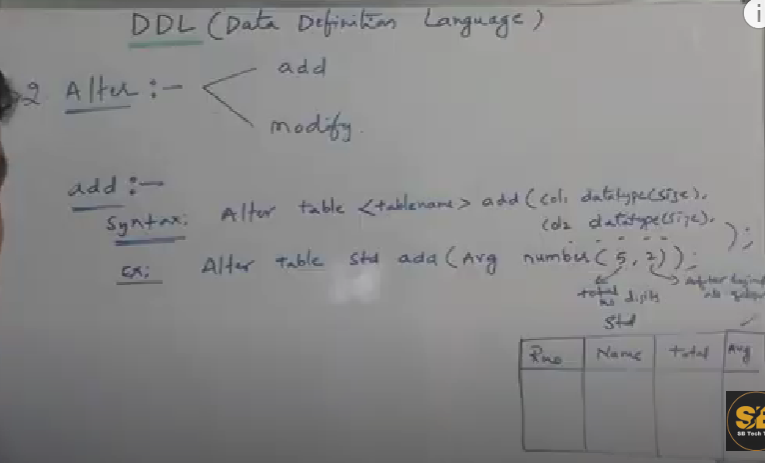 DDL (Data Definition Language)
2 Alter :-
add
modify.
add :-
Syntax: Alter table <tablename> add (col1 datatype(size),
col2 datatype(size),
);
Ex: Alter table Std add (Avg number (5,2));
total no digits
Std
Rno Name Total Avg
SB
SB Tech T